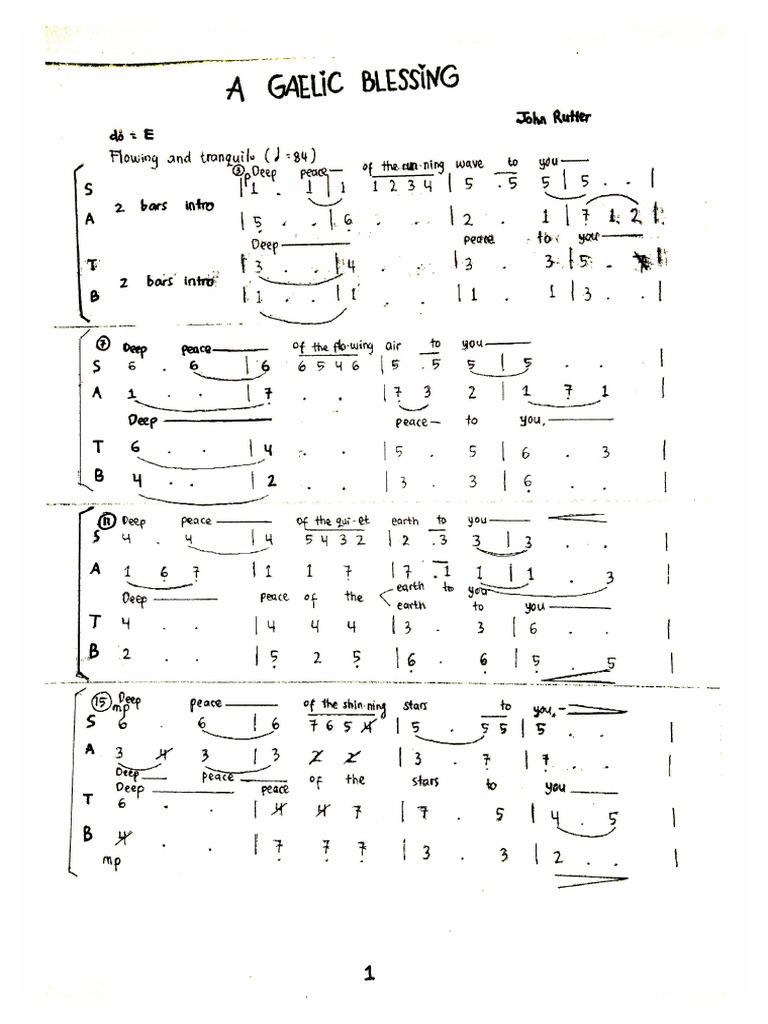 A GAELIC BLESSING
John Rutter
do = E
Flowing and tranquilo (♩=84)
③ p Deep peace— of the run-ning wave to you—
S |1 . 1 |1 1 2 3 4 |5 .5 5 |5 . . |
2 bars intro
A |5 . . |6 . . |2 . 1 |7 1 2 |
Deep— peace to you—
T |3 . . |4 . . |3 . 3 |5 .
2 bars intro
B |1 . . |1 . . |1 . 1 |3 . . |
⑦ Deep peace— of the flo-wing air to you—
S 6 . 6 |6 6 5 4 6 |5 .5 5 |5 . . |
A 1 . . |7 . . |7 3 2 |1 7 1 |
Deep— peace— to you,—
T 6 . . |4 . . |5 . 5 |6 . 3 |
B 4 . . |2 . . |3 . 3 |6 . . |
⑪ Deep peace— of the qui-et earth to you—
S 4 . 4 |4 5 4 3 2 |2 .3 3 |3 . . |
A 1 6 7 |1 1 7 |7 .1 1 |1 . 3 |
earth to you
Deep— peace of the < earth to you—
T 4 . . |4 4 4 |3 . 3 |6 . . |
B 2 . . |5 2 5 |6 . 6 |5 . 5 |
⑮ Deep peace— of the shin-ning stars to you,—
mp
S 6 . 6 |6 7 6 5 4 |5 . 5 5 |5 . . |
A 3 4 3 |3 2 2 |3 . 7 |7 . . |
Deep— peace— of the stars to you—
Deep— peace
T 6 . . |4 4 7 |7 . 5 |4 . 5 |
B 4 . . |7 7 7 |3 . 3 |2 . . |
mp
1